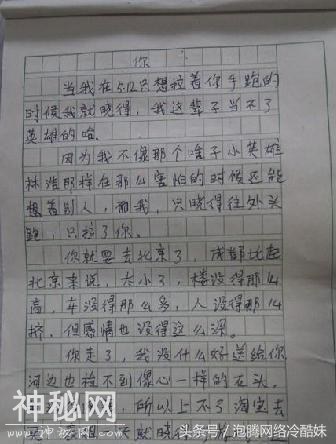 你
当我在512只想拉着你手跑的
时候我就晓得，我这辈子当不了
英雄的哈
因为我不像那个啥子小英雄
林浩那样在那么害怕的时候还能
想着别人，而我，只晓得往外头
跑，只拉了你。
你就要去北京了，成都比起
北京来说，太小了，楼没得那么
高，车没得那么多，人没得那么
挤，但感情也没得这么深。
你走了，我没什么好送给你
河边也捡不到像心一样的石头，
所以上不了淘宝去
就晓得
神秘网
WWW.
头条号／泡腾网络冷酷妹